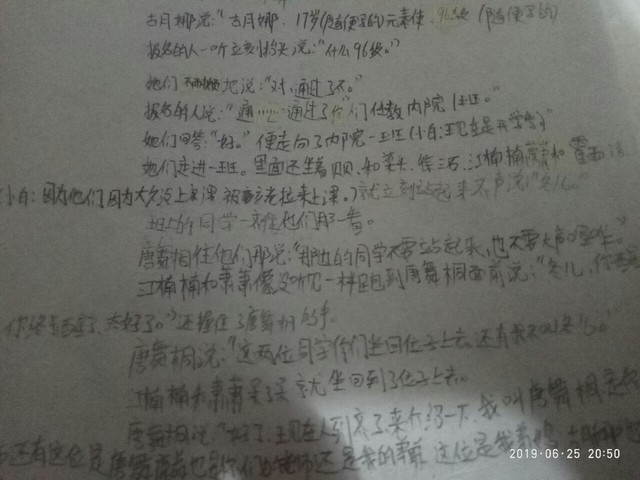 古月娜说:"古月娜,17岁(随便写的)元素使,96级(随便写的)
报名的人一听立刻抬头说:"什么96级。"
她们不耐烦地说:"对,通过了不。"
报名的人说:"通……通过了你们们任教内院1班。"
她们回答:"好。"便走向了内院一班(小白:现在是开学季)
她们走进一班。里面还坐着贝贝、和菜头、徐三石、江楠楠萧萧和霍雨
小白:因为他们因为太久没上来课被拉来上课。)就立刻站起来大声说"冬儿。"
班上的同学一齐往他们那看。
唐舞桐往他们那说:"那边的同学不要站起来,也不要大声喧哗。
江楠楠和萧萧像没听见一样跑到唐舞桐面前说:"冬儿,你
太好了。"还握住了唐舞桐的手。
唐舞桐说:"这两位同学你们坐回位子上去,还有我不叫冬儿。"
江楠楠和萧萧呆了呆就坐回到了位子上去。
唐舞桐说:"好了,现在人到齐了来介绍一下,我叫唐舞桐是
还有这位是唐舞 也是你们的老师还是我的 这位是我
2019-06-25 20:50